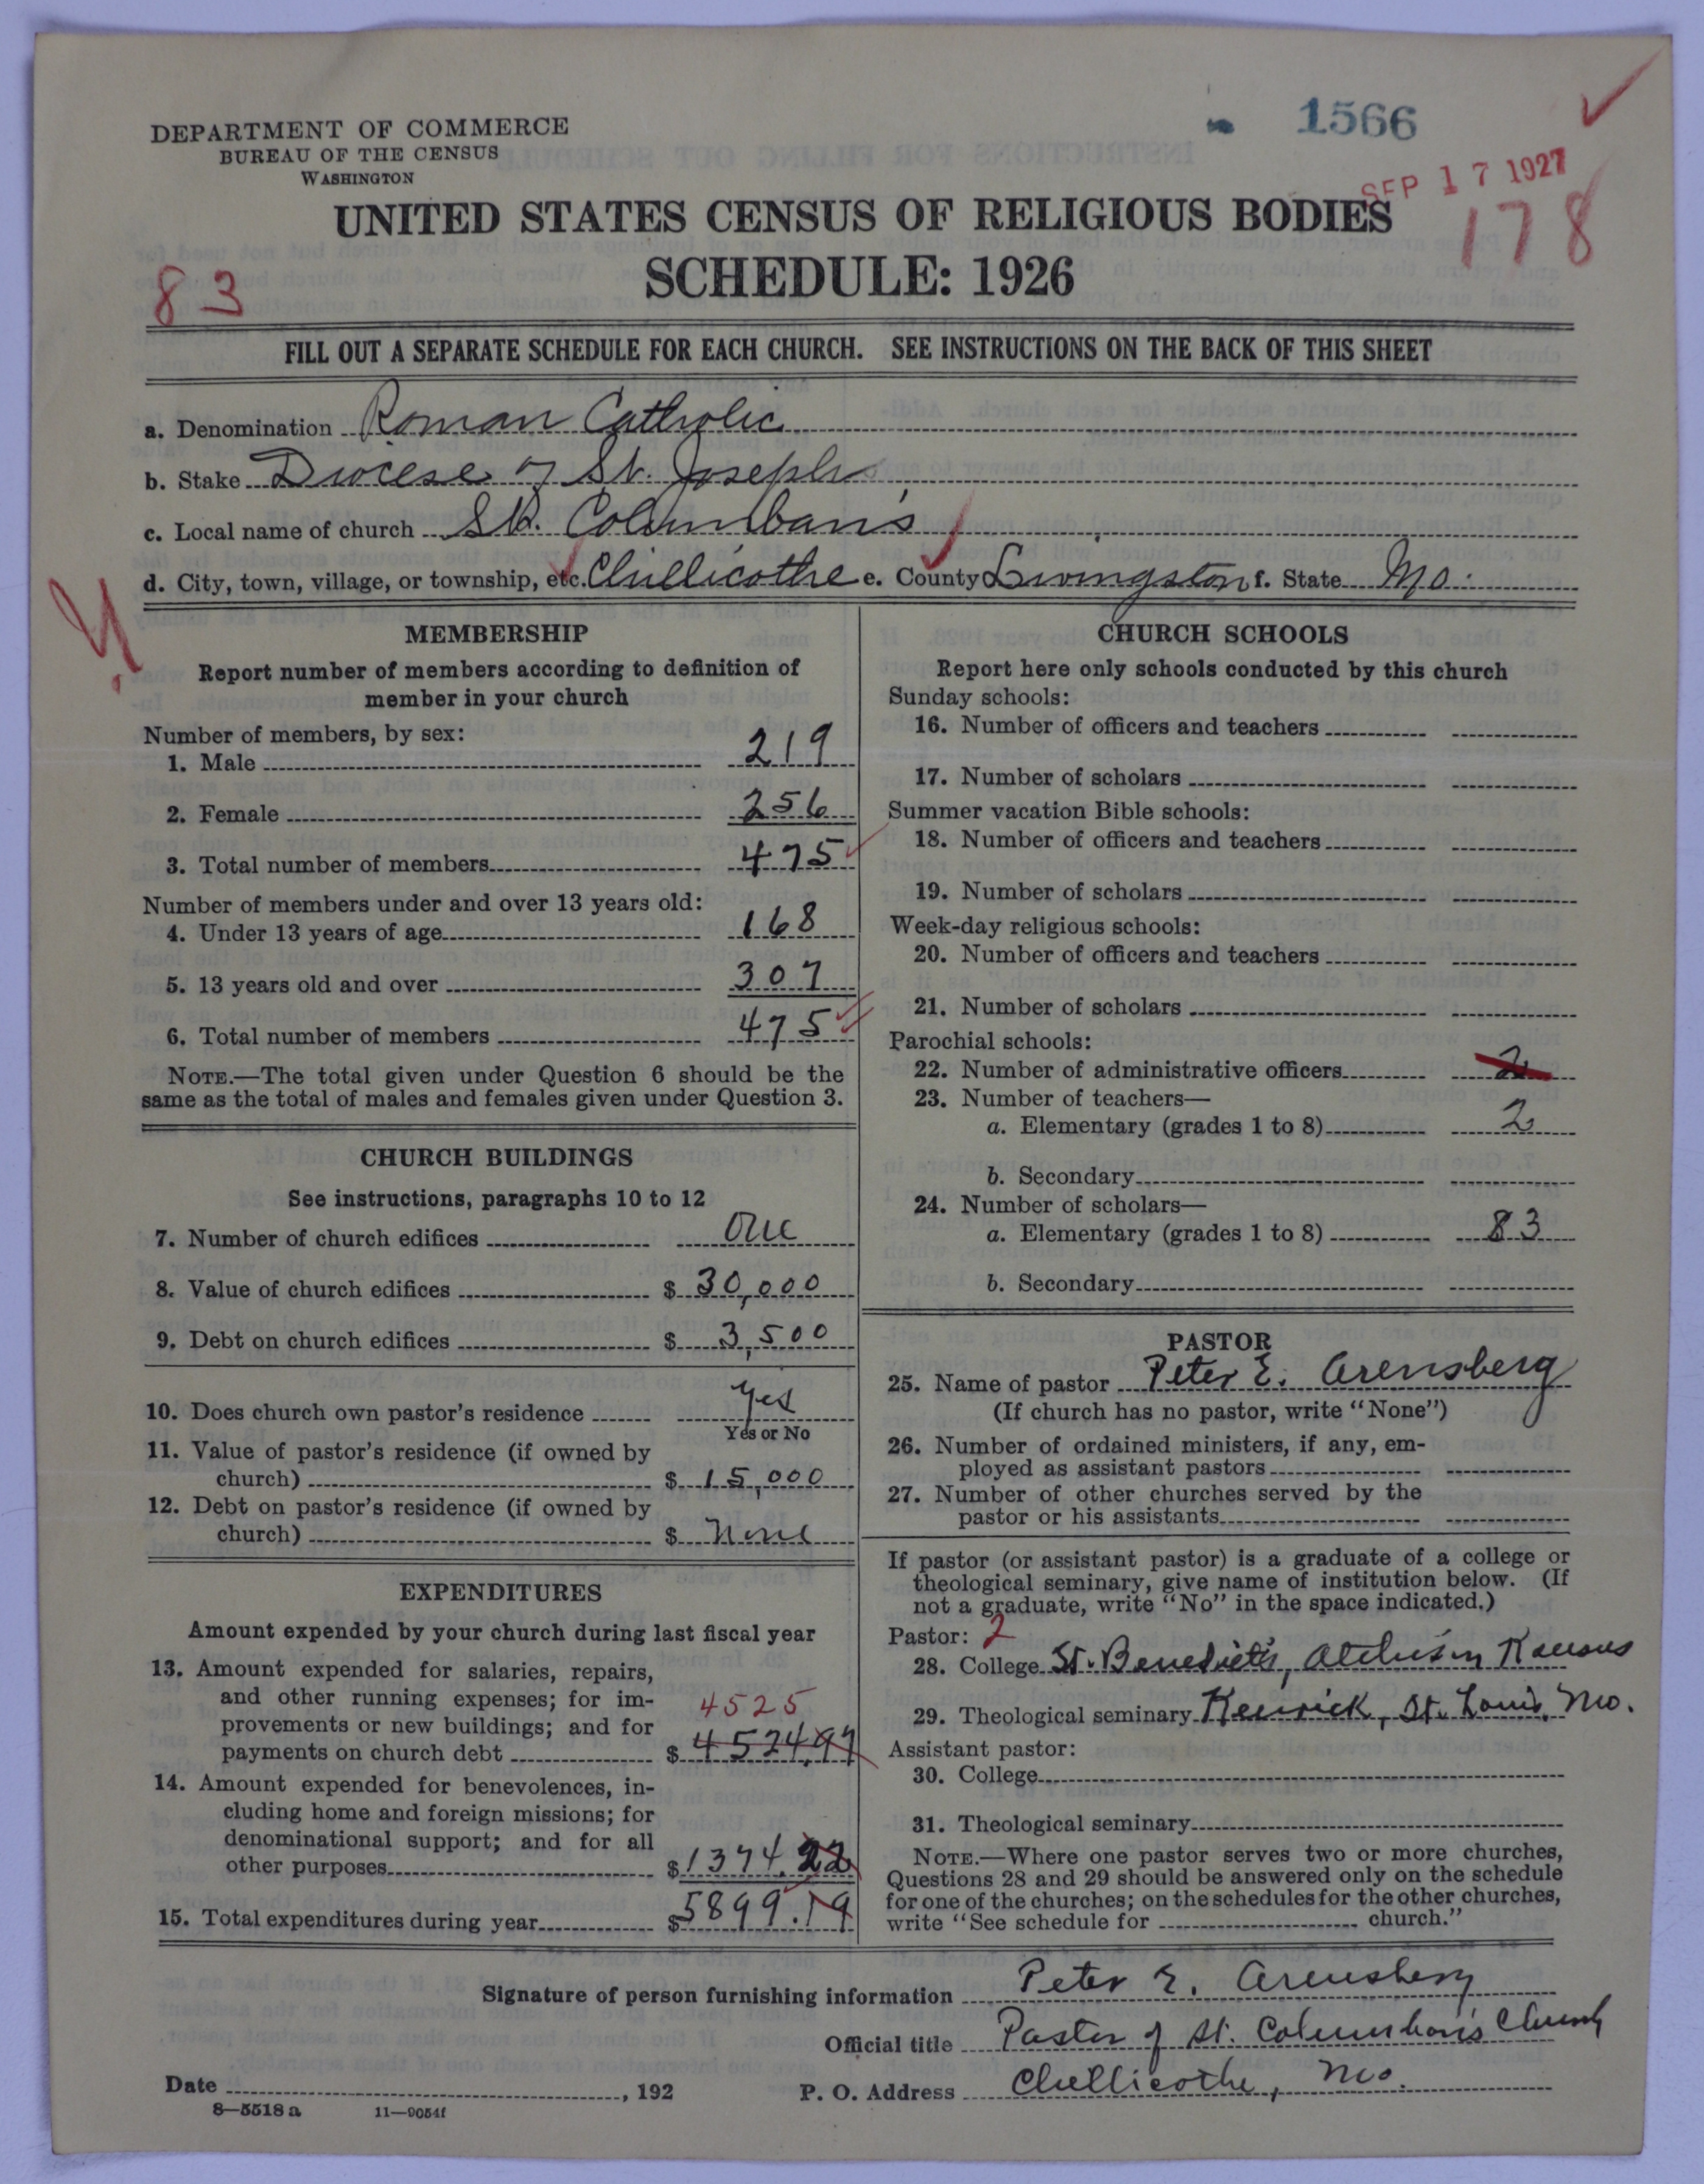 1566
SEP 17 1927
178
DEPARTMENT OF COMMERCE
BUREAU OF THE CENSUS
WASHINGTON
UNITED STATES CENSUS OF RELIGIOUS BODIES
SCHEDULE: 1926
83
FILL OUT A SEPARATE SCHEDULE FOR EACH CHURCH. SEE INSTRUCTIONS ON THE BACK OF THIS SHEET
a. Denomination Roman Catholic
b. Stake Diocese of St. Joseph
c. Local name of church St. Columban's
d. City, town, village, or township, etc. Chillicothe e. County Livingston f. State Mo.
MEMBERSHIP
Report number of members according to definition of
member in your church
Number of members, by sex:
1. Male 219
2. Female 256
3. Total number of members 475
Number of members under and over 13 years old:
4. Under 13 years of age 168
5. 13 years old and over 307
6. Total number of members 475
NOTE.—The total given under Question 6 should be the
same as the total of males and females given under Question 3.
CHURCH BUILDINGS
See instructions, paragraphs 10 to 12
7. Number of church edifices One
8. Value of church edifices $ 30,000
9. Debt on church edifices $ 3,500
10. Does church own pastor's residence Yes
Yes or No
11. Value of pastor's residence (if owned by
church) $ 15,000
12. Debt on pastor's residence (if owned by
church) $ None
EXPENDITURES
Amount expended by your church during last fiscal year
13. Amount expended for salaries, repairs,
and other running expenses; for im-
provements or new buildings; and for
4525
payments on church debt $ 4524.97
14. Amount expended for benevolences, in-
cluding home and foreign missions; for
denominational support; and for all
other purposes $ 1374.22
15. Total expenditures during year $ 5899.19
CHURCH SCHOOLS
Report here only schools conducted by this church
Sunday schools:
16. Number of officers and teachers
17. Number of scholars
Summer vacation Bible schools:
18. Number of officers and teachers
19. Number of scholars
Week-day religious schools:
20. Number of officers and teachers
21. Number of scholars
Parochial schools:
22. Number of administrative officers 2
23. Number of teachers—
a. Elementary (grades 1 to 8) 2
b. Secondary
24. Number of scholars—
a. Elementary (grades 1 to 8) 83
b. Secondary
PASTOR
25. Name of pastor Peter E. Arensberg
(If church has no pastor, write "None")
26. Number of ordained ministers, if any, em-
ployed as assistant pastors
27. Number of other churches served by the
pastor or his assistants
If pastor (or assistant pastor) is a graduate of a college or
theological seminary, give name of institution below. (If
not a graduate, write "No" in the space indicated.)
Pastor: 2
28. College St. Benedict's, Atchison Kansas
29. Theological seminary Kenrick, St. Louis, Mo.
Assistant pastor:
30. College
31. Theological seminary
NOTE.—Where one pastor serves two or more churches,
Questions 28 and 29 should be answered only on the schedule
for one of the churches; on the schedules for the other churches,
write "See schedule for church."
Signature of person furnishing information Peter E. Arensberg
Official title Pastor of St. Columban's Church
Date , 192 P. O. Address Chillicothe, Mo.
8—5518 a 11—9054f